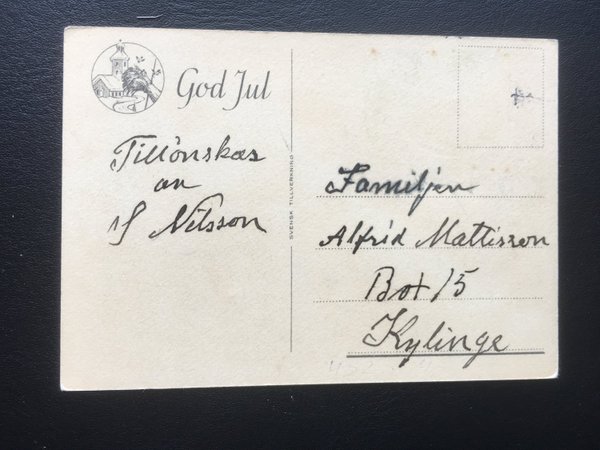 God Jul
Tillönskas
an
N Nilsson
SVENSK TILLVERKNING
Familjen
Alfrid Mattisson
Box 15
Kylinge